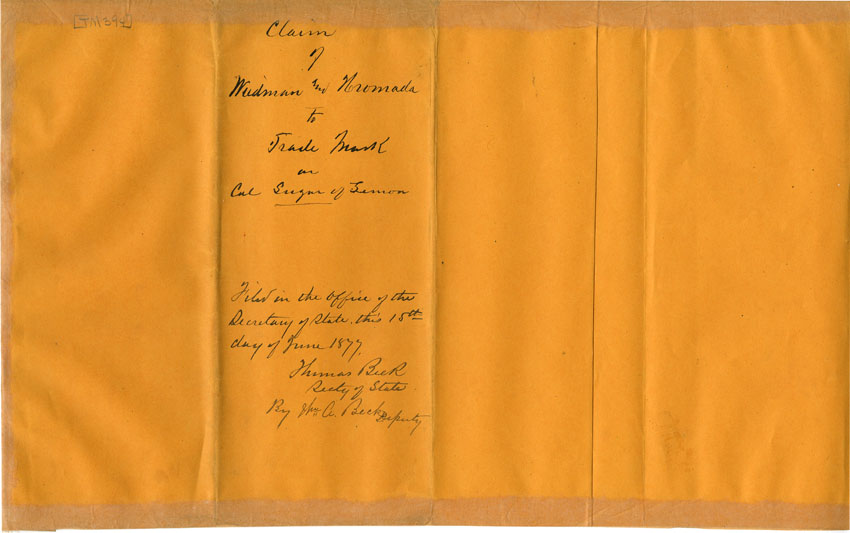 [TM394]
Claim
of
Wiedman and Hromada
to
Trade Mark
on
Cal Sugar of Lemon
Filed in the Office of the
Secretary of State this 15th
day of June 1877,
Thomas Beck
Secty of State
By Jno A. Beck Deputy